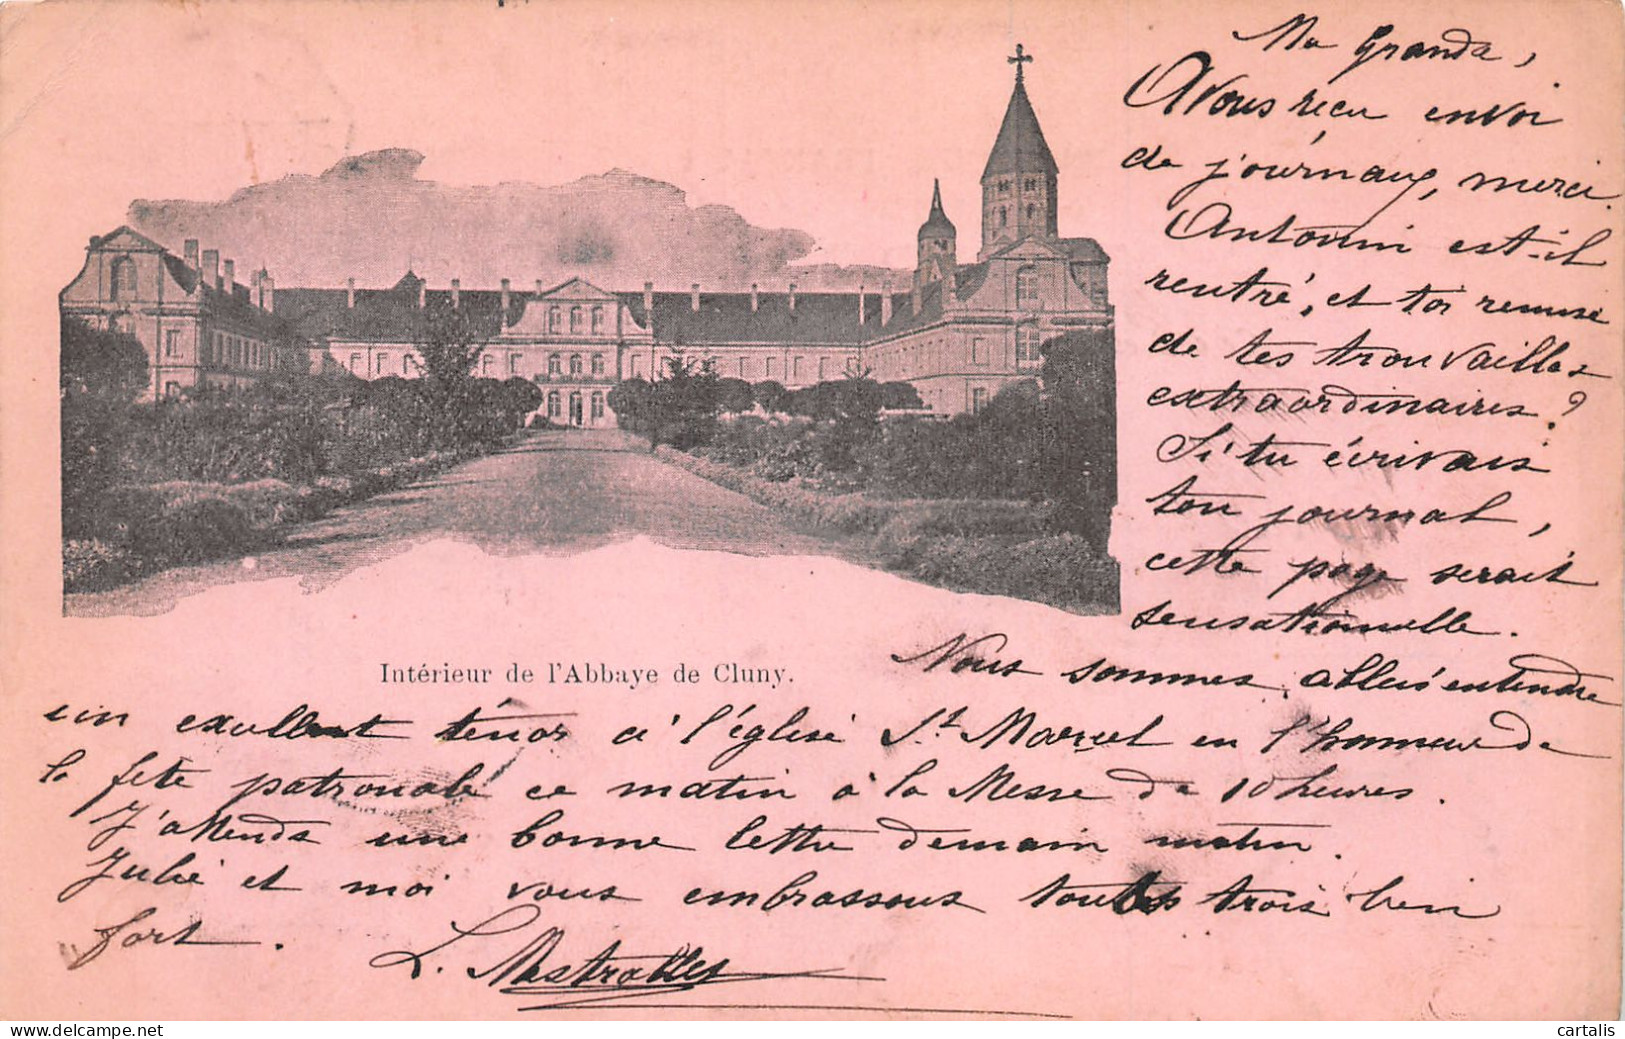 Ma Grande,
Avons reçu envoi
de journaux, merci.
Antonin est-il
rentré, et toi remise
de tes trouvailles
extraordinaires?
Si tu écrivais
ton journal,
cette page serait
sensationnelle.
Intérieur de l'Abbaye de Cluny.
Nous sommes allés entendre
un excellent ténor à l'église St Marcel en l'honneur de
la fête patronale ce matin à la Messe de 10 heures.
J'attends une bonne lettre demain matin.
Julie et moi vous embrassons toutes trois bien
fort.
L.
www.delcampe.net
cartalis